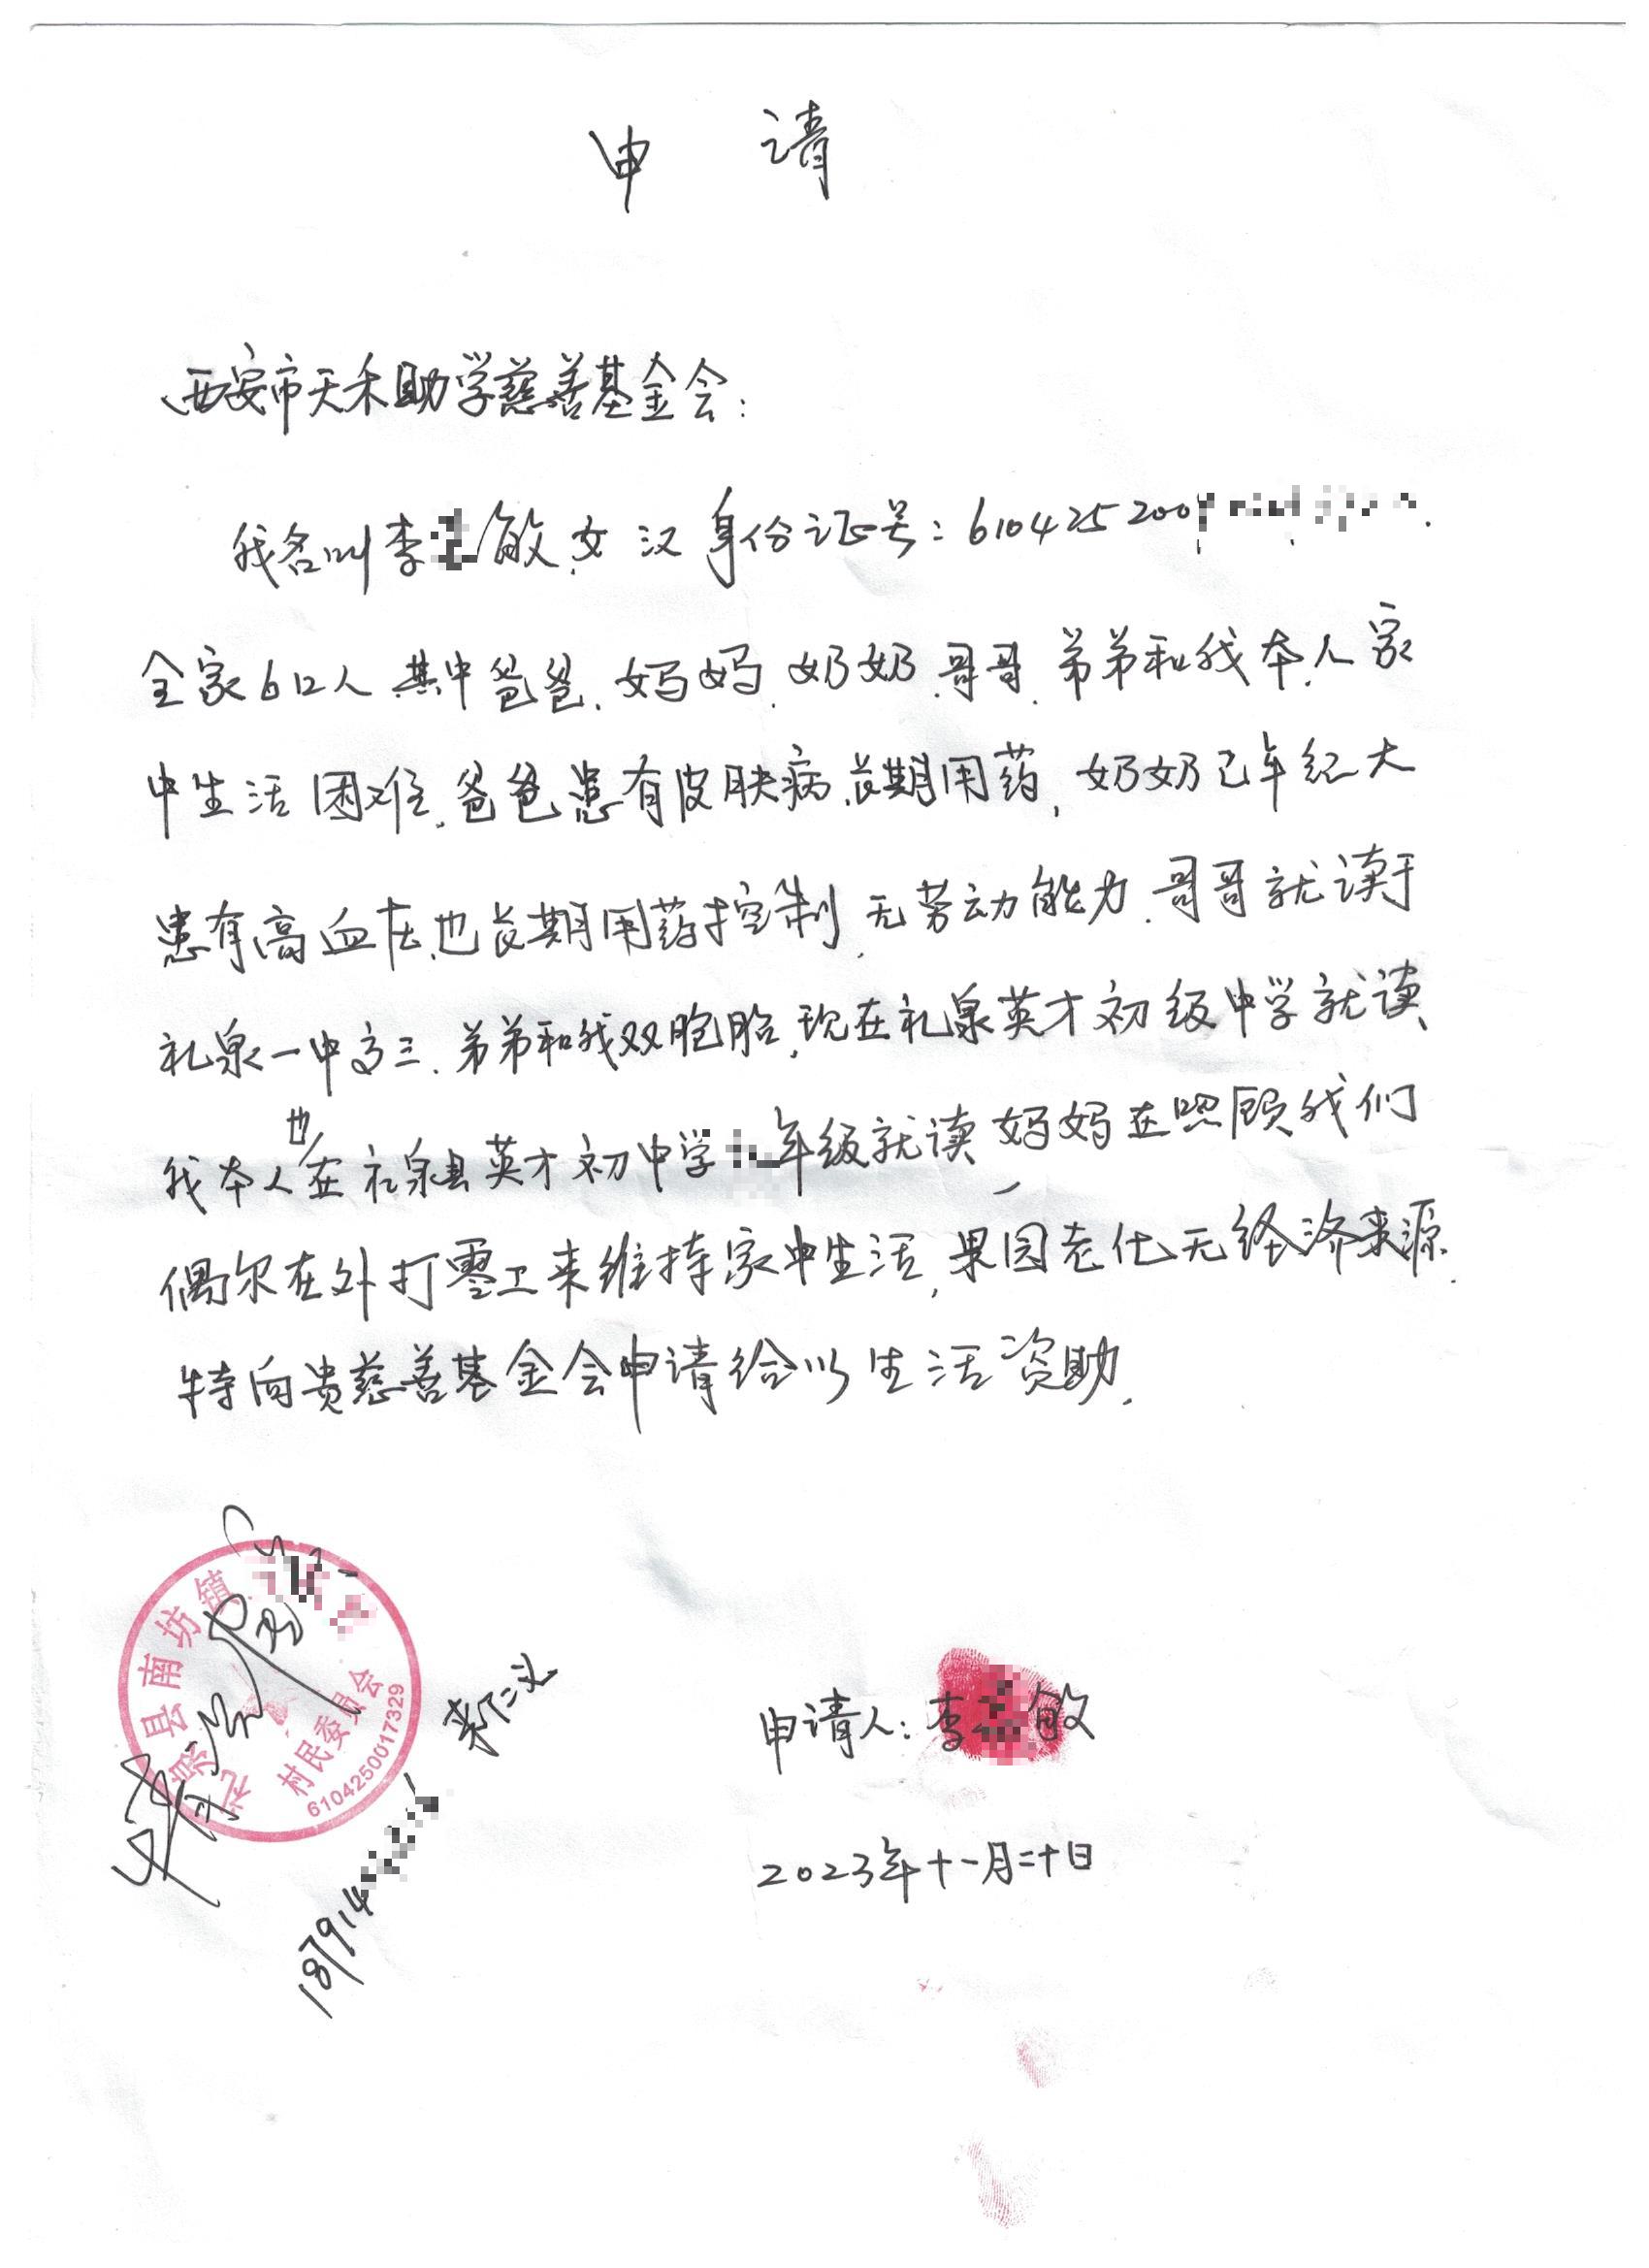 申 请
西安市天禾助学慈善基金会：
我名叫李 敏.女 汉 身份证号：610425200
全家6口人 其中爸爸.妈妈.奶奶.哥哥.弟弟和我本人.家
中生活困难.爸爸患有皮肤病.长期用药,奶奶已年纪大
患有高血压.也长期用药控制.无劳动能力.哥哥就读于
礼泉一中高三.弟弟和我双胞胎,现在礼泉英才初级中学就读、
我本人也在礼泉县英才初中学 年级就读 妈妈在照顾我们
偶尔在外打零工来维持家中生活,果园老化无经济来源.
特向贵慈善基金会申请给以生活资助.
礼泉县南坊镇
村民委员会
6104250017329
情况属实
187914
申请人：李 敏
2023年十一月二十日